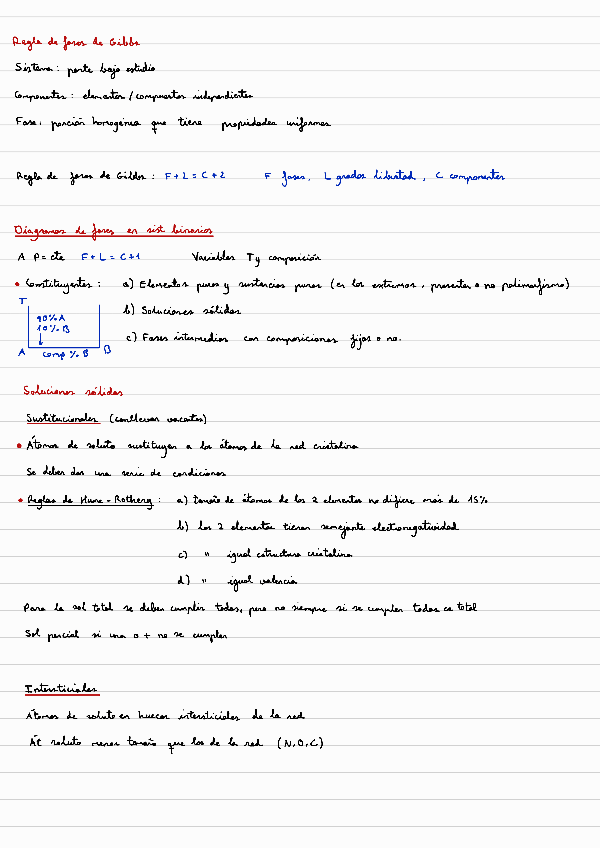 Regla de fases de Gibbs
Sistema: parte bajo estudio
Componentes: elementos/compuestos independientes
Fase: porción homogénea que tiene propiedades uniformes
Regla de fases de Gibbs: F+L=C+2 F fases, L grados libertad, C componentes
Diagramas de fases en sist binarios
A P=cte F+L=C+1 Variables T y composición
• Constituyentes: a) Elementos puros y sustancias puras (en los extremos, presentan o no polimorfismo)
b) Soluciones sólidas
c) Fases intermedias con composiciones fijas o no.
T
90% A
10% B
A comp % B B
Soluciones sólidas
Sustitucionales (conllevan vacantes)
• Átomos de soluto sustituyen a los átomos de la red cristalina
Se deben dar una serie de condiciones
• Reglas de Hume-Rothery: a) tamaño de átomos de los 2 elementos no difiere más de 15%
b) los 2 elementos tienen semejante electronegatividad
c) " igual estructura cristalina
d) " igual valencia
Para la sol total se deben cumplir todas, pero no siempre si se cumplen todas es total
Sol parcial si una o + no se cumplen
Intersticiales
Átomos de soluto en huecos intersticiales de la red
Át soluto menor tamaño que los de la red (N,O,C)